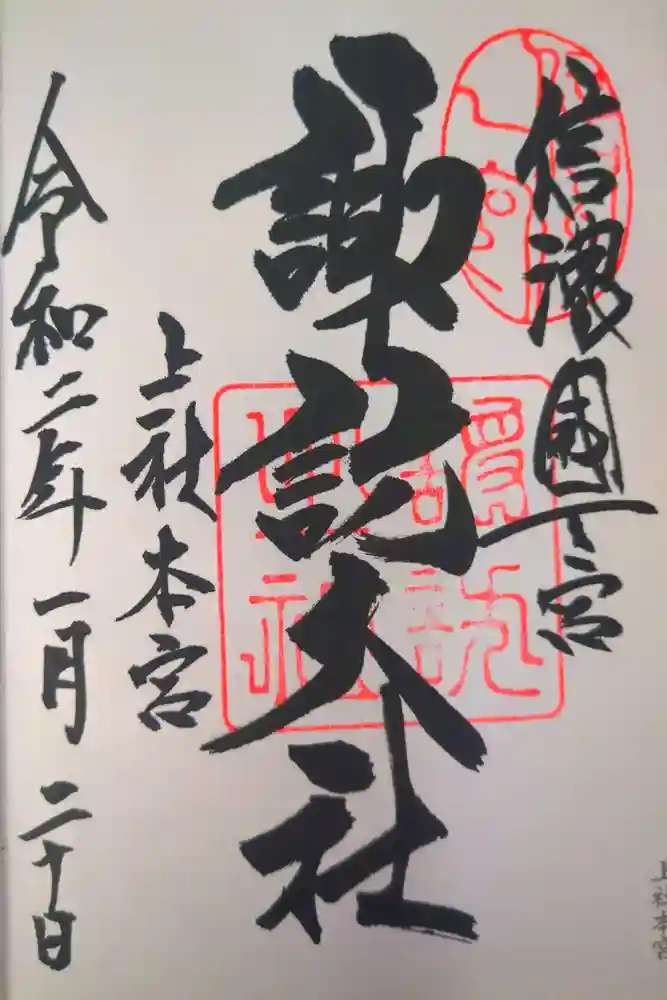 信濃國一宮
諏訪大社
上社本宮
令和二年一月二十日
諏訪
大社
上社本宮